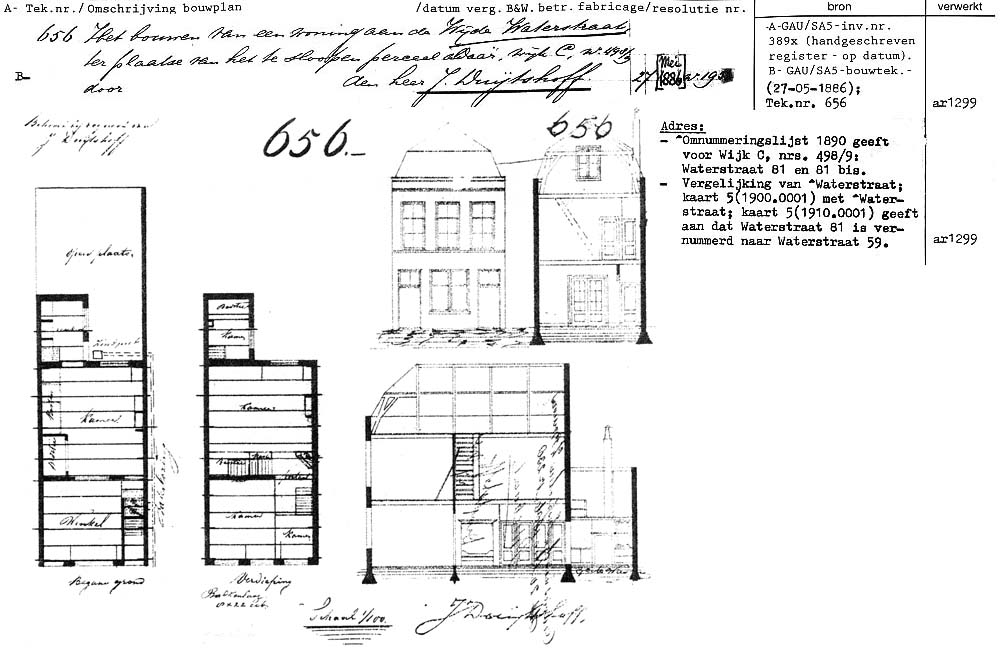 A- Tek.nr./ Omschrijving bouwplan /datum verg. B&W. betr. fabricage/resolutie nr. bron verwerkt
656 Het bouwen van een woning aan de Wijde Waterstraat
ter plaatse van het te sloopen perceel aldaar, wijk C, nr 498/9
B-
door den heer J. Duijtshoff 27 [Mei 1886]
-A-GAU/SA5-inv.nr.
389x (handgeschreven
register - op datum).
B- GAU/SA5-bouwtek.-
(27-05-1886);
Tek.nr. 656
ar1299
J Duijtshoff
656.-
656
Adres:
- ^Omnummeringslijst 1890 geeft
voor Wijk C, nrs. 498/9:
Waterstraat 81 en 81 bis.
- Vergelijking van ^Waterstraat;
kaart 5(1900.0001) met ^Water-
straat; kaart 5(1910.0001) geeft
aan dat Waterstraat 81 is ver-
nummerd naar Waterstraat 59.
ar1299
Open plaats
Zinkput
Kamer
Winkel
Begane grond
Kamer
Kamer
Kamer
Kamer
Verdieping
Balklaag
Schaal 1/100.
J Duijtshoff.